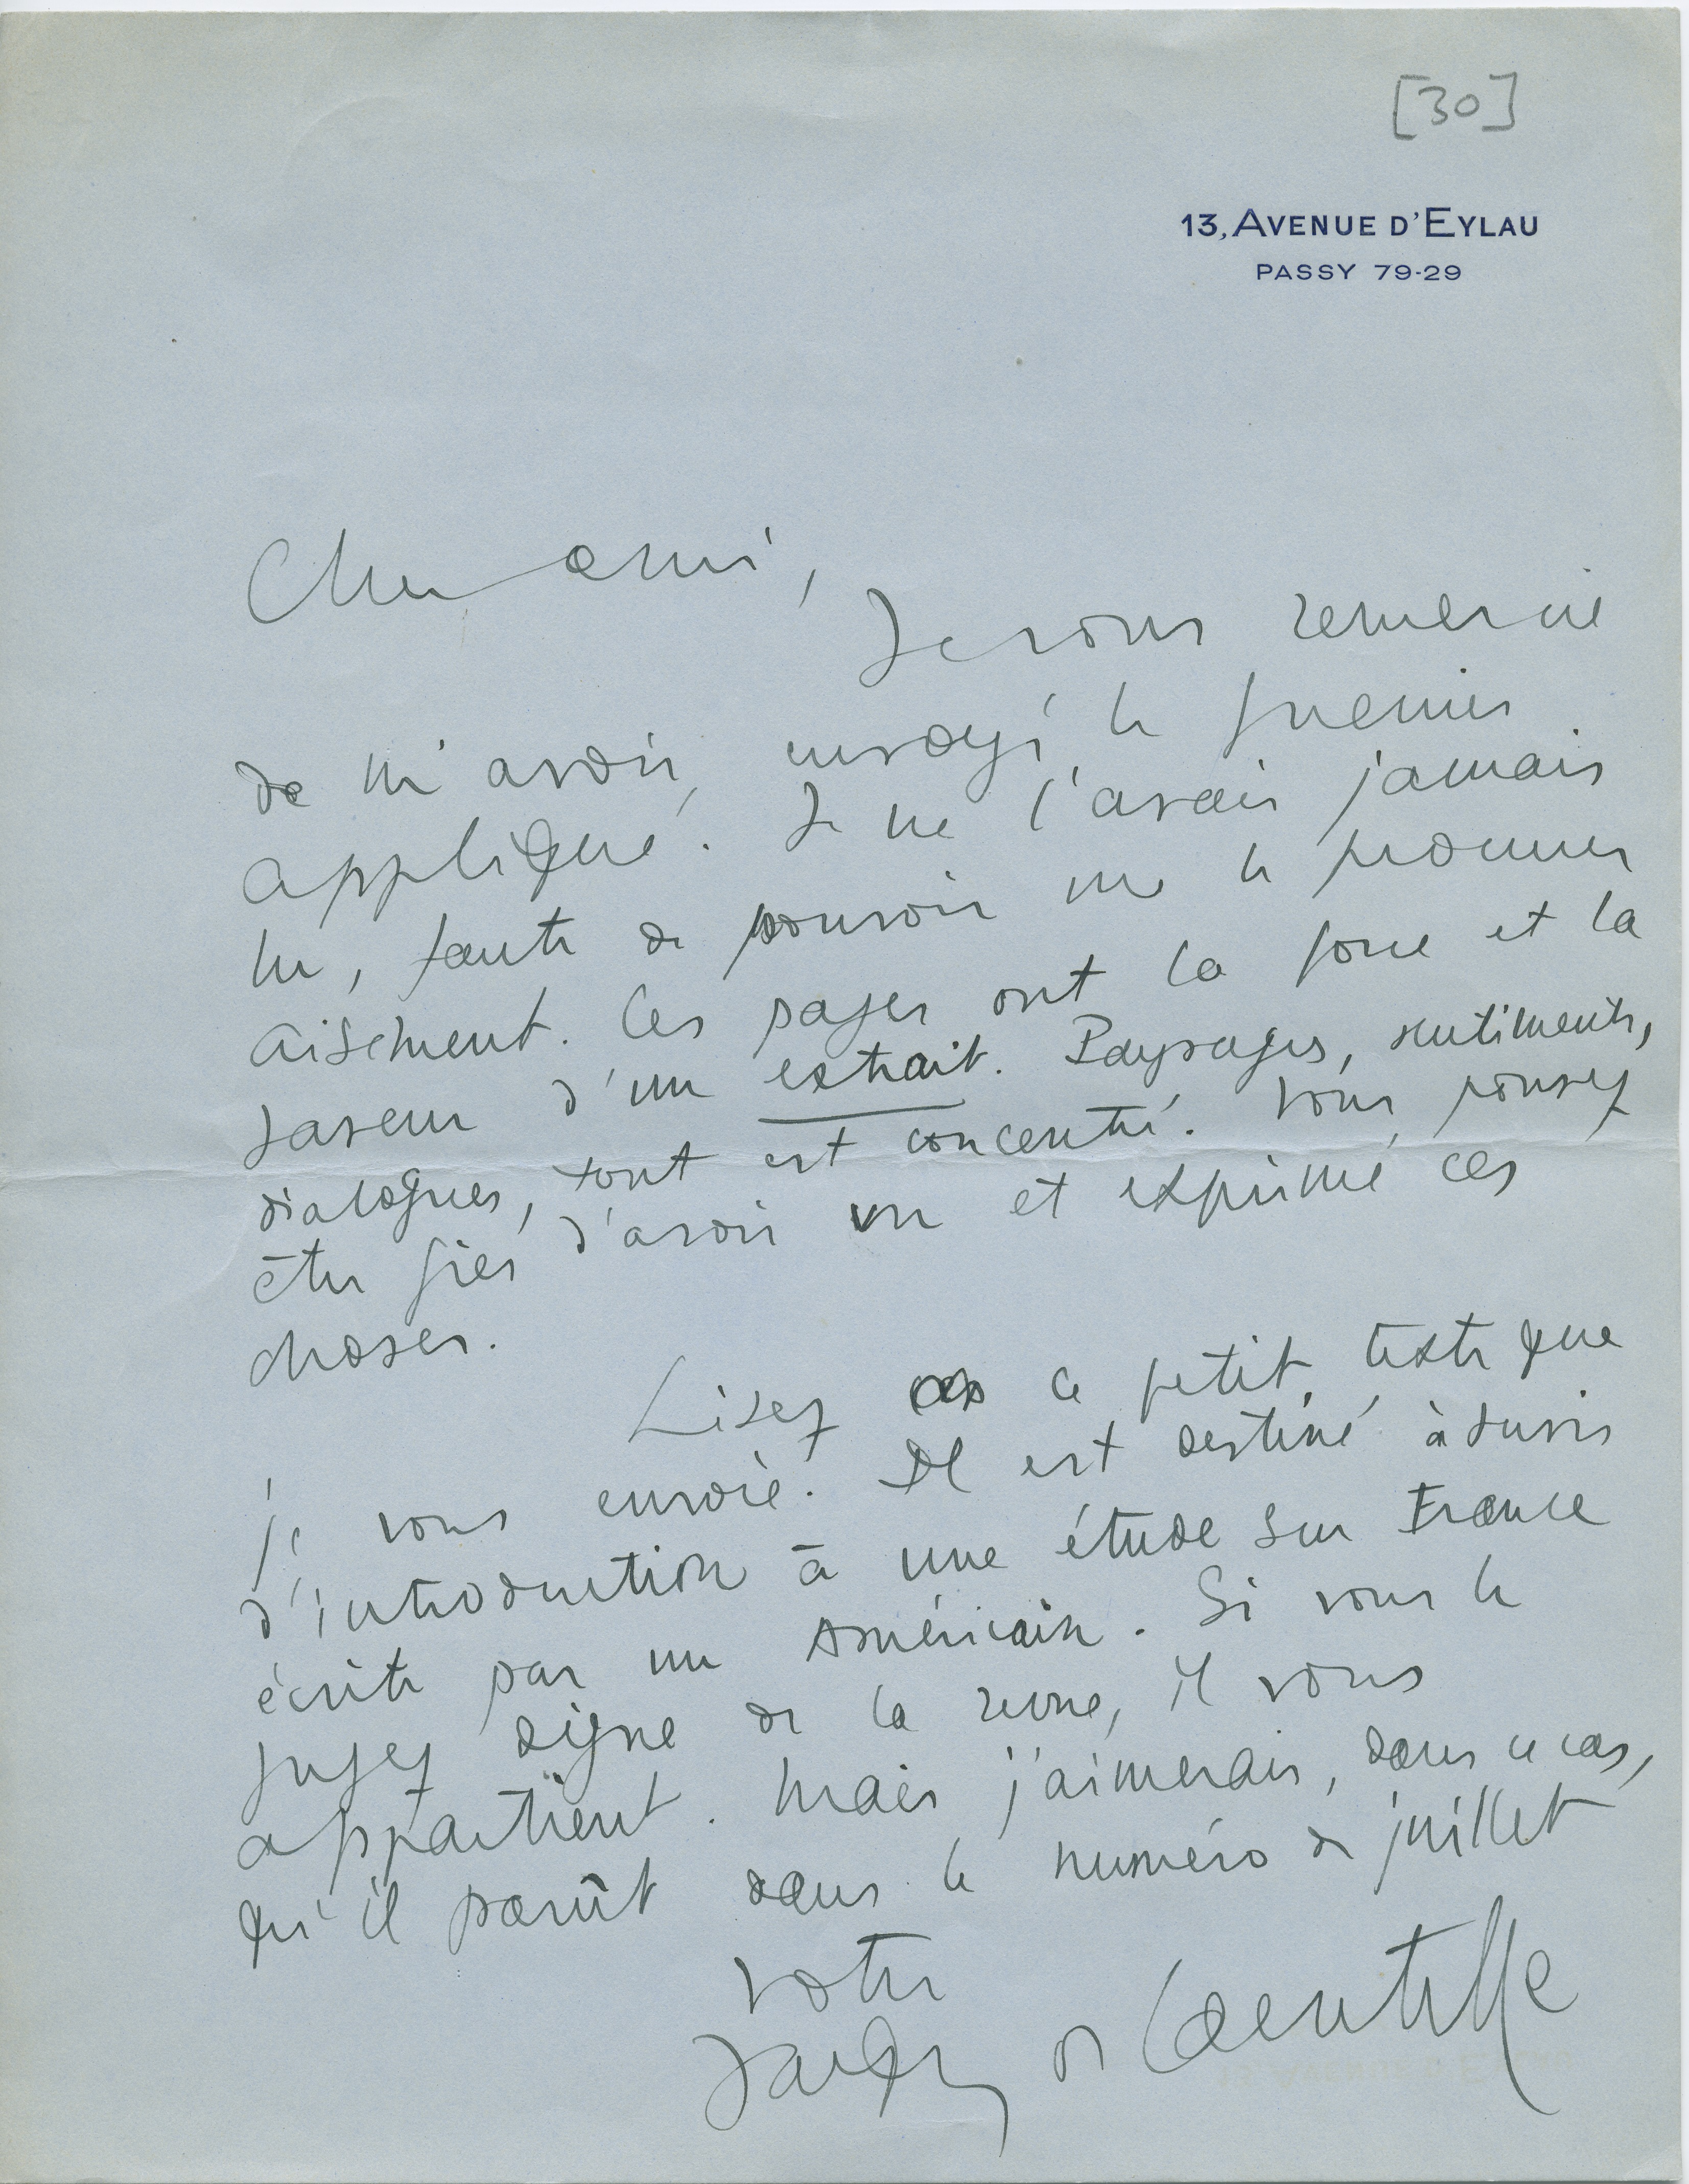 [30]
13, AVENUE D'EYLAU
PASSY 79-29
Cher ami,
Je vous remercie
de m'avoir envoyé le guerrier
appliqué. Je ne l'avais jamais
lu, faute de pouvoir me le procurer
aisément. Ces pages ont la force et la
saveur d'un extrait. Paysages, sentiments,
dialogues, tout est concentré. Vous pouvez
être fier d'avoir vu et exprimé ces
choses.
Lisez ce petit texte que
je vous envoie. Il est destiné à servir
d'introduction à une étude sur France
écrite par un Américain. Si vous le
jugez digne de la revue, il vous
appartient. Mais j'aimerais, dans ce cas,
qu'il parût dans le numéro de juillet
votre
Jacques de Lacretelle